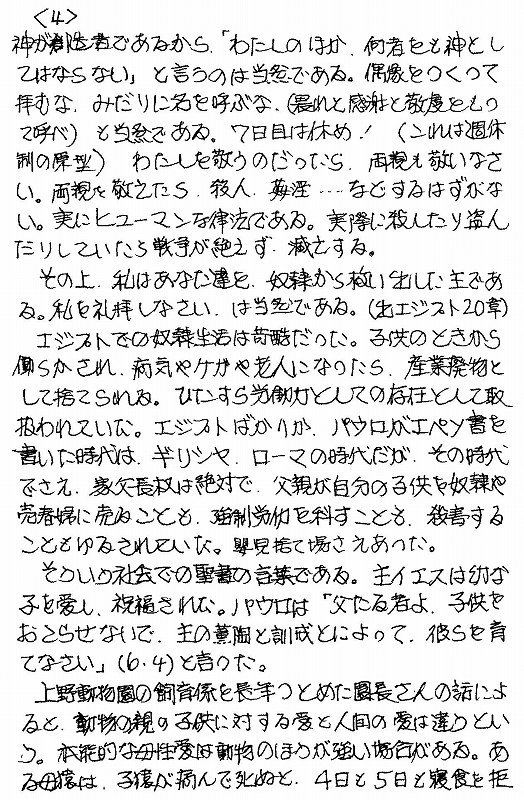 〈4〉
神が創造者であるから、「わたしのほか、何者をも神とし
てはならない」と言うのは当然である。偶像をつくって
拝むな、みだりに名を呼ぶな、(畏れと感謝と敬虔をもっ
て呼べ) と当然である。7日目は休め! (これは週休
制の原型) わたしを敬うのだったら、両親も敬いなさ
い。両親を敬えたら、殺人、姦淫…などするはずがな
い。実にヒューマンな律法である。実際に殺したり盗ん
だりしていたら戦争が絶えず、滅亡する。
その上、私はあなた達を、奴隷から救い出した主であ
る。私を礼拝しなさい、は当然である。(出エジプト20章)
エジプトでの奴隷生活は苛酷だった。子供のときから
働らかされ、病気やケガや老人になったら、産業廃物と
して捨てられる。ひたすら労働力としての存在として取
扱われていた。エジプトばかりか、パウロがエペソ書を
書いた時代は、ギリシヤ、ローマの時代だが、その時代
でさえ、家父長权は絶対で、父親が自分の子供を奴隷や
売春婦に売ることも、強制労働を科すことも、殺害する
こともゆるされていた。嬰児捨て場さえあった。
そういう社会での聖書の言葉である。主イエスは幼な
子を愛し、祝福された。パウロは「父たる者よ、子供を
おこらせないで、主の薫陶と訓戒とによって、彼らを育
てなさい」(6・4)と言った。
上野動物園の飼育係を長年つとめた園長さんの話によ
ると、動物の親の子供に対する愛と人間の愛は違うとい
う。本能的な母性愛は動物のほうが強い場合がある。あ
る母猿は、子猿が病んで死ぬと、4日と5日と寝食を拒